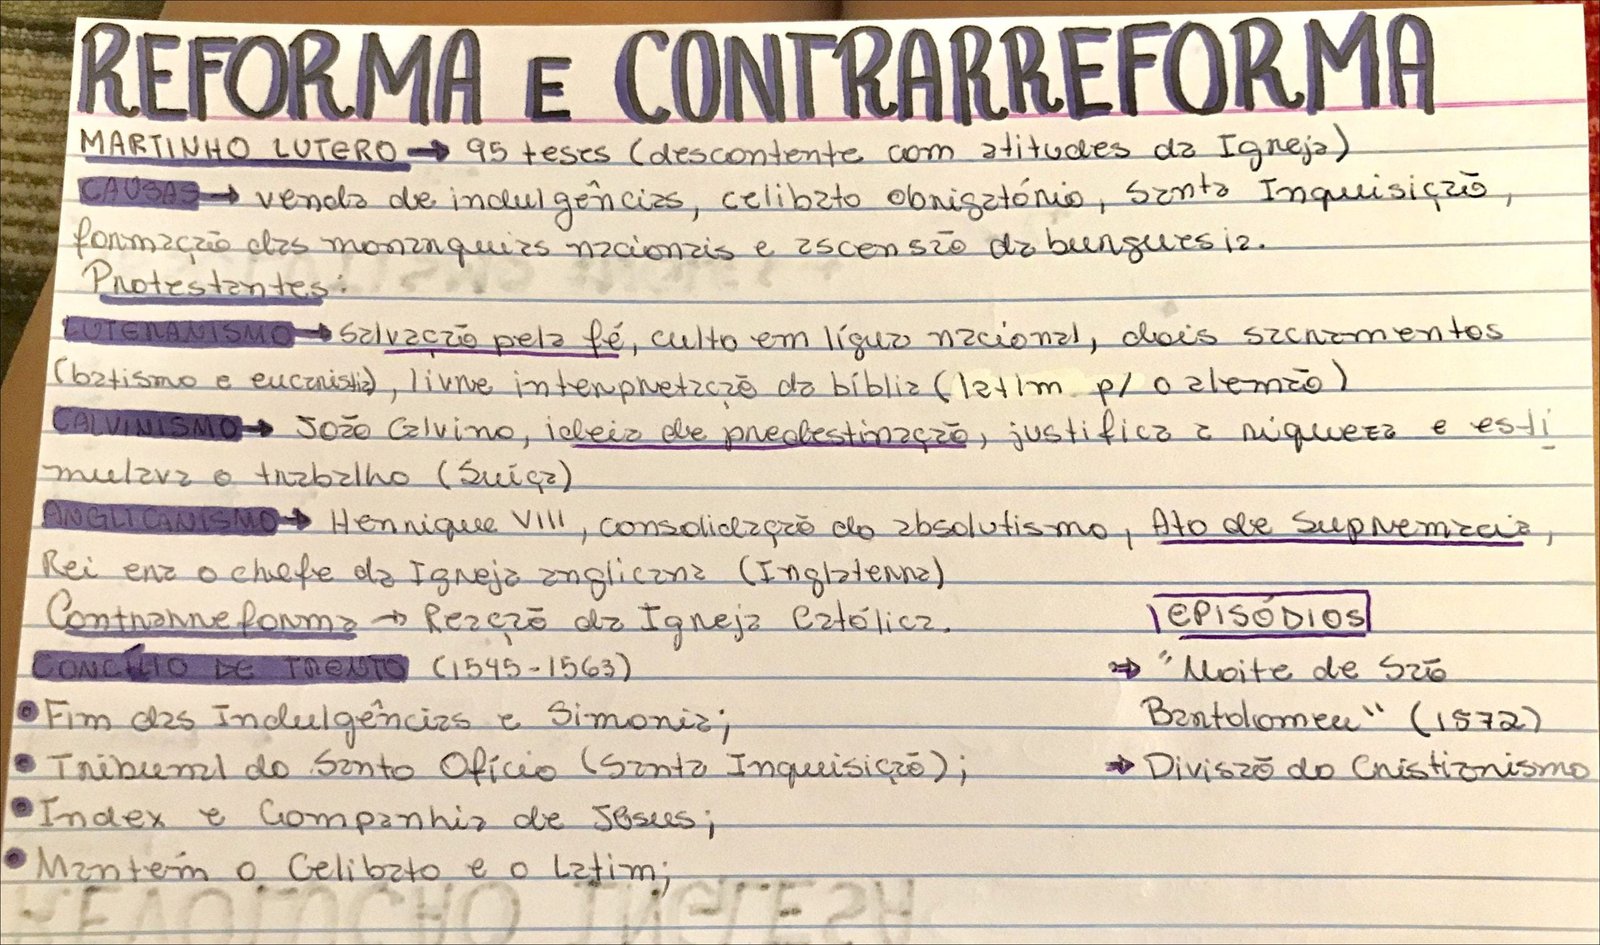 REFORMA E CONTRARREFORMA
MARTINHO LUTERO → 95 teses (descontente com atitudes da Igreja)
CAUSAS → venda de indulgências, celibato obrigatório, Santa Inquisição,
formação das monarquias nacionais e ascensão da burguesia.
Protestantes:
LUTERANISMO → Salvação pela fé, culto em lígua nacional, dois sacramentos
(batismo e eucaristia), livre interpretação da bíblia (latim p/ o alemão)
CALVINISMO → João Calvino, ideia de predestinação, justifica a riqueza e esti
mulava o trabalho (Suíça)
ANGLICANISMO → Henrique VIII, consolidação do absolutismo, Ato de Supremacia,
Rei era o chefe da Igreja anglicana (Inglaterra)
Contrarreforma → Reação da Igreja Católica.
CONCÍLIO DE TRENTO (1545-1563)
• Fim das Indulgências e Simonia;
• Tribunal do Santo Ofício (Santa Inquisição);
• Index e Companhia de Jesus;
• Mantem o Celibato e o Latim;
EPISÓDIOS
⇒ "Noite de São
Bartolomeu" (1572)
⇒ Divisão do Cristianismo